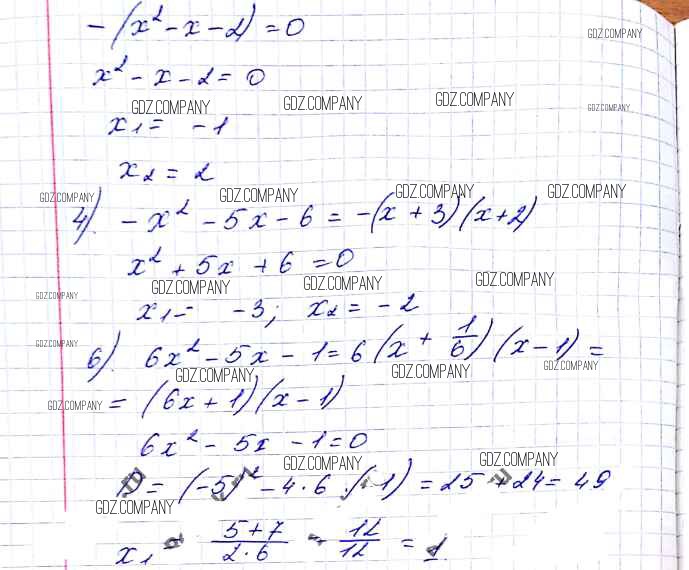 -(x² - x - 2) = 0
GDZ.COMPANY
x² - x - 2 = 0
GDZ.COMPANY GDZ.COMPANY GDZ.COMPANY GDZ.COMPANY
x₁ = -1
x₂ = 2
GDZ.COMPANY GDZ.COMPANY GDZ.COMPANY GDZ.COMPANY
4). -x² - 5x - 6 = -(x + 3)(x + 2)
x² + 5x + 6 = 0
GDZ.COMPANY GDZ.COMPANY GDZ.COMPANY GDZ.COMPANY
x₁ = -3; x₂ = -2
GDZ.COMPANY
6). 6x² - 5x - 1 = 6(x + 1/6)(x - 1) =
GDZ.COMPANY GDZ.COMPANY GDZ.COMPANY
GDZ.COMPANY
= (6x + 1)(x - 1)
6x² - 5x - 1 = 0
GDZ.COMPANY GDZ.COMPANY
D = (-5)² - 4·6·(-1) = 25 + 24 = 49
GDZ.COMPANY
x₁ = (5+7)/(2·6) = 12/12 = 1.